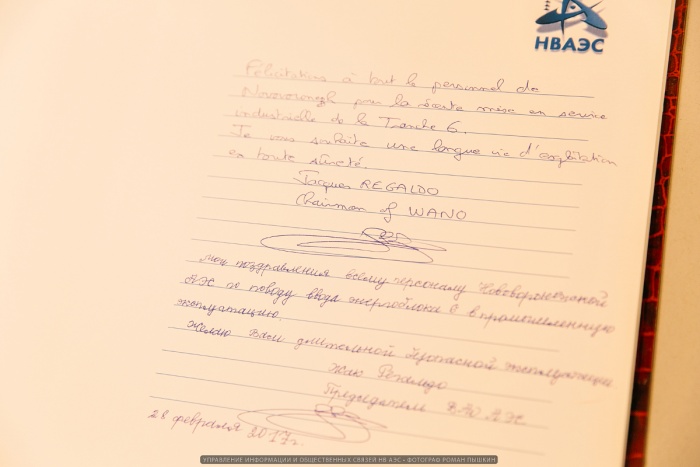 НВАЭС
Félicitations à tout le personnel de
Novovoronezh pour la récente mise en service
industrielle de la Tranche 6.
Je vous souhaite une longue vie d'exploitation
en toute sûreté.
Jacques REGALDO
Chairman of WANO
Мои поздравления всему персоналу Нововоронежской
АЭС по поводу ввода энергоблока 6 в промышленную
эксплуатацию.
Желаю Вам длительной безопасной эксплуатации.
Жак Регальдо
Председатель ВАО АЭС
28 февраля 2017г.
УПРАВЛЕНИЕ ИНФОРМАЦИИ И ОБЩЕСТВЕННЫХ СВЯЗЕЙ НВ АЭС • ФОТОГРАФ РОМАН ПЫШКИН